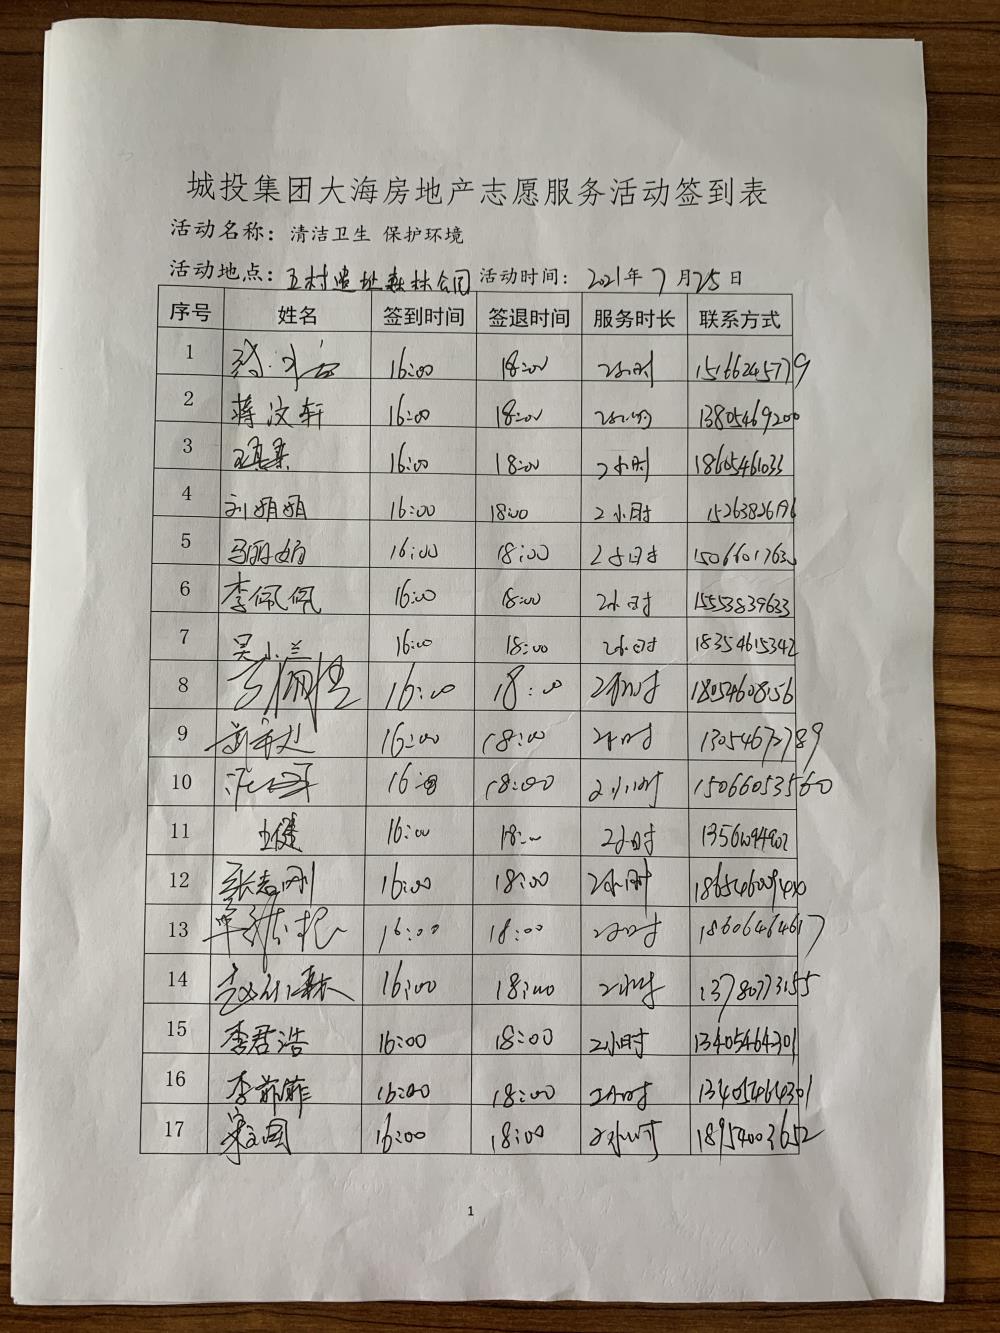 城投集团大海房地产志愿服务活动签到表
活动名称：清洁卫生 保护环境
活动地点：五村遗址森林公园 活动时间：2021年7月25日
序号 姓名 签到时间 签退时间 服务时长 联系方式
1 16:00 18:00 2小时
2 蒋汶轩 16:00 18:00 2小时 13805469200
3 16:00 18:00 2小时 18605461033
4 刘娟娟 16:00 18:00 2小时 15263826196
5 马丽娟 16:00 18:00 2小时
6 李佩佩 16:00 18:00 2小时 15553839633
7 吴小兰 16:00 18:00 2小时 18354615342
8 16:00 18:00 2小时 18054608156
9 16:00 18:00 2小时 13054672789
10 16:00 18:00 2小时 15066053560
11 王健 16:00 18:00 2小时
12 张志刚 16:00 18:00 2小时
13 16:00 18:00 2小时 18606464617
14 16:00 18:00 2小时 13780773155
15 李君浩 16:00 18:00 2小时 13405464301
16 李菲菲 16:00 18:00 2小时 13405464301
17 16:00 18:00 2小时 18954003652
1